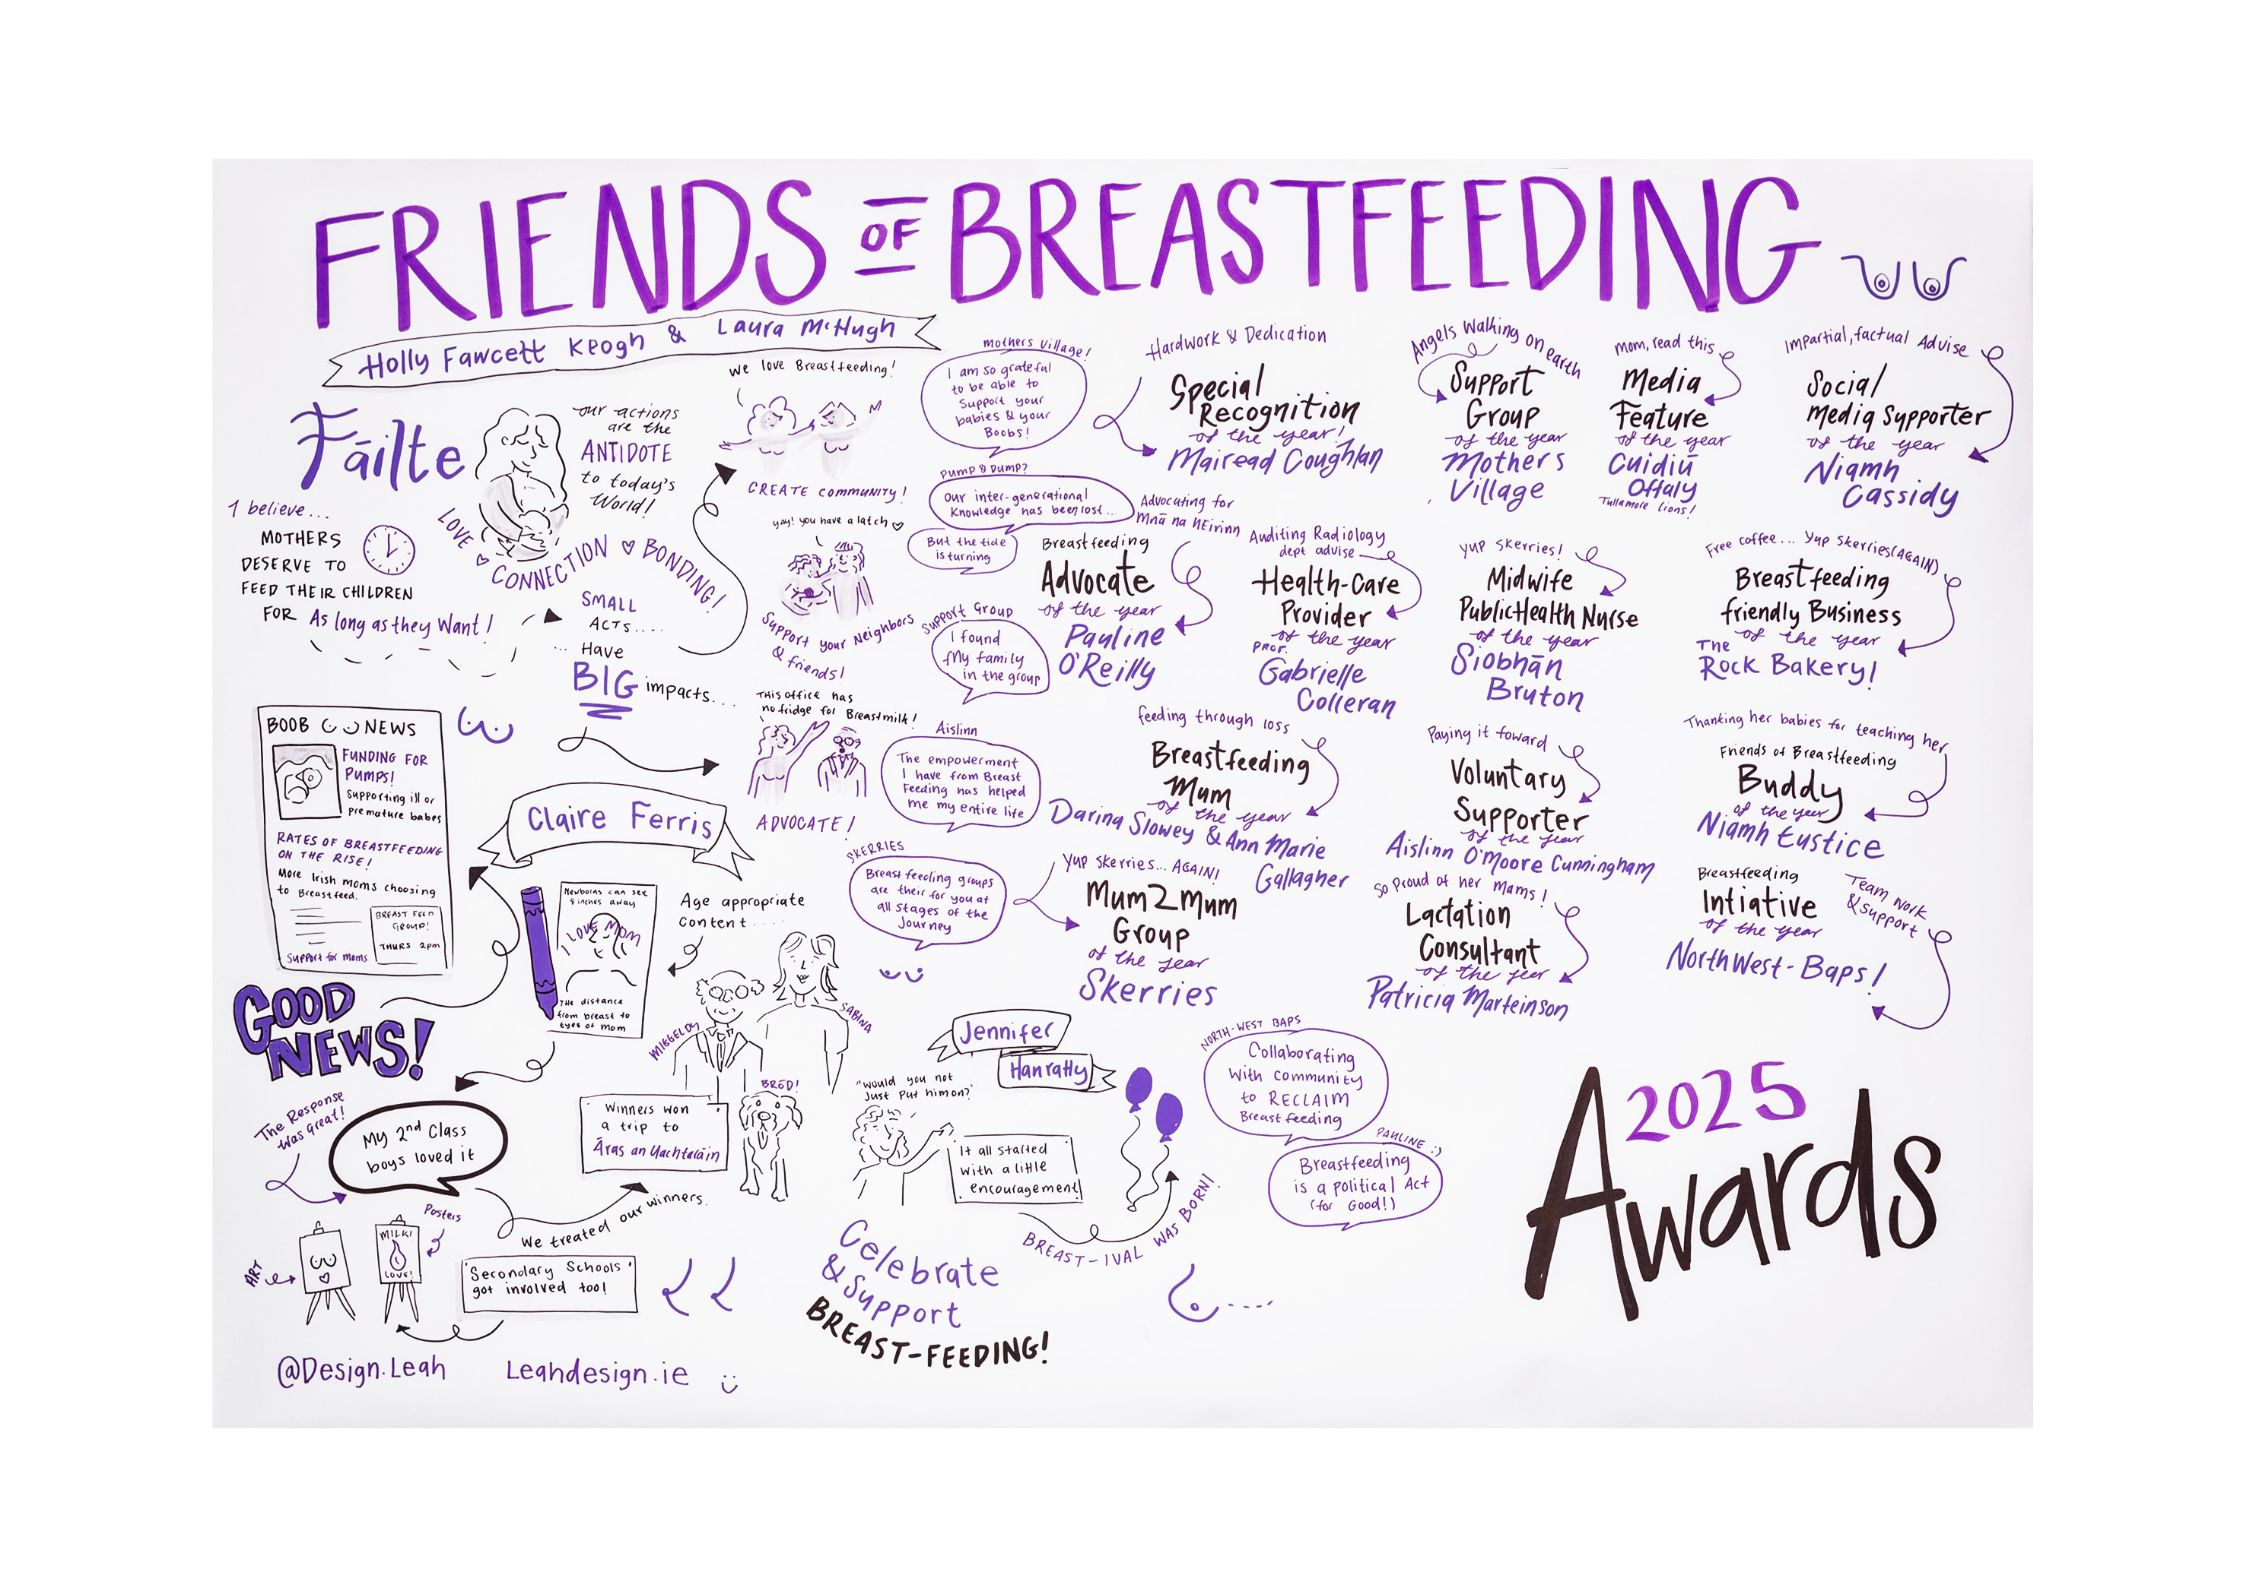 FRIENDS OF BREASTFEEDING
Holly Fawcett Keogh & Laura McHugh
Fāilte
our actions
are the
ANTIDOTE
to today's
World!
LOVE ♡ CONNECTION ♡ BONDING!
I believe...
MOTHERS
DESERVE TO
FEED THEIR CHILDREN
FOR As long as they Want!
SMALL
ACTS....
... Have
BIG impacts...
we love Breastfeeding!
CREATE COMMUNITY!
yay! you have a latch ♡
Support your Neighbors
& friends!
THIS office has
no fridge for Breastmilk!
ADVOCATE!
BOOB NEWS
FUNDING FOR
PUMPS!
Supporting ill or
premature babes
RATES OF BREASTFEEDING
ON THE RISE!
More Irish moms choosing
to Breastfeed.
BREAST FEED
GROUP!
THURS 2pm
Support for moms
GOOD
NEWS!
Claire Ferris
Newborns can see
9 inches away
I LOVE MOM
THE distance
from breast to
eyes of mom
Age appropriate
Content.....
MIGGELDY
SABINA
BRÓD!
Winners won
a trip to
Āras an Uachtarāin
The Response
was great!
My 2nd Class
boys loved it
We treated our winners.
Posters
ART
MILK!
LOVE!
'Secondary Schools'
got involved too!
@Design.Leah
Leahdesign.ie
mothers village!
I am so grateful
to be able to
Support your
babies & your
Boobs!
PUMP & DUMP?
Our inter-generational
Knowledge has been lost...
But the tide
is turning
Support Group
I found
My family
in the group
Aislinn
The empowerment
I have from Breast
Feeding has helped
me my entire life
SKERRIES
Breast feeding groups
are their for you at
all stages of the
Journey
Jennifer
Hanratty
"Would you not
Just Put him on?"
It all started
with a little
encouragement
BREAST-IVAL WAS BORN!
Celebrate
& Support
BREAST-FEEDING!
NORTH-WEST BAPS
Collaborating
With community
to RECLAIM
Breastfeeding
PAULINE :)
Breastfeeding
is a political Act
(for Good!)
Hardwork & Dedication
Special
Recognition
of the year!
Mairead Coughlan
Angels Walking on earth
Support
Group
of the year
Mothers
Village
Mom, read this
Media
Feature
of the year
Cuidiū
Offaly
Tullamore Lions!
Impartial, factual Advise
Social
Media Supporter
of the year
Niamh
Cassidy
Advocating for
Mnā na hEirinn
Breastfeeding
Advocate
of the year
Pauline
O'Reilly
Auditing Radiology
dept advise
Health-Care
Provider
of the year
PROF.
Gabrielle
Colleran
Yup Skerries!
Midwife
Public Health Nurse
of the year
Siobhān
Bruton
Free coffee... Yup Skerries (AGAIN)
Breastfeeding
friendly Business
of the year
The
Rock Bakery!
feeding through loss
Breastfeeding
Mum
of the year
Darina Slowey & Ann Marie
Gallagher
Paying it foward
Voluntary
Supporter
of the year
Aislinn O'Moore Cunningham
Thanking her babies for teaching her
Friends of Breastfeeding
Buddy
of the year
Niamh Eustice
Yup Skerries... AGAIN!
Mum2Mum
Group
of the year
Skerries
So proud of her mams!
Lactation
Consultant
of the year
Patricia Marteinson
Breastfeeding
Intiative
of the year
Team work
& support
NorthWest-Baps!
2025
Awards